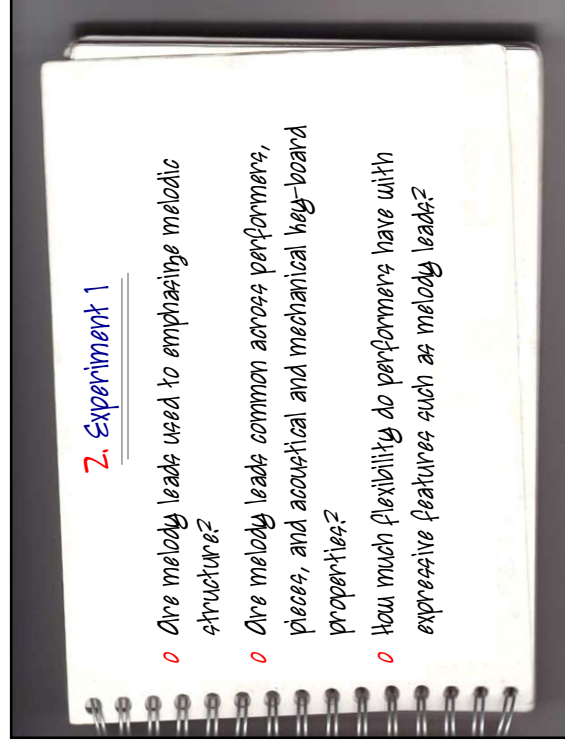 2. Experiment 1
o Are melody leads used to emphasize melodic
structure?
o Are melody leads common across performers,
pieces, and acoustical and mechanical key-board
properties?
o How much flexibility do performers have with
expressive features such as melody leads?